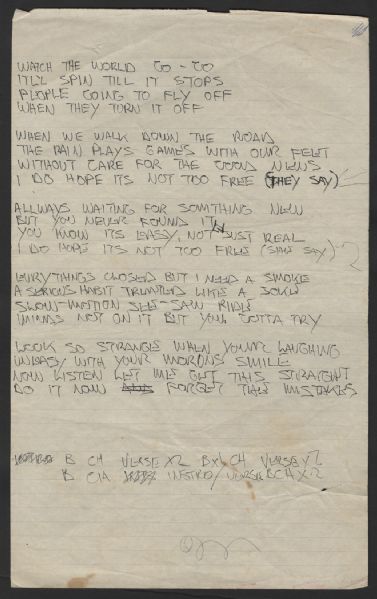 WATCH THE WORLD GO-GO
IT'LL SPIN TILL IT STOPS
PEOPLE GOING TO FLY OFF
WHEN THEY TURN IT OFF
WHEN WE WALK DOWN THE ROAD
THE RAIN PLAYS GAMES WITH OUR FEET
WITHOUT CARE FOR THE GOOD NEWS
I DO HOPE ITS NOT TOO FREE (THEY SAY)
ALLWAYS WAITING FOR SOMTHING NEW
BUT YOU NEVER FOUND IT
YOU KNOW ITS EASY, NOT JUST REAL
I DO HOPE ITS NOT TOO FREE (SHES SAY)
EVRYTHINGS CLOSED BUT I NEED A SMOKE
A SERIOUS HABIT TREATED LIKE A JOKE
SLOW-MOTION SEE-SAW RIDE
MINDS NOT ON IT BUT YOU GOTTA TRY
LOOK SO STRANGE WHEN YOUR LAUGHING
UNEASY WITH YOUR MORONS SMILE
NOW LISTEN LET ME GET THIS STRAIGHT
DO IT NOW FORGET THE MISTAKES
B CH VERSE X2 CH VERSE X2
B CH INSTRO/ VERSE B CH X2